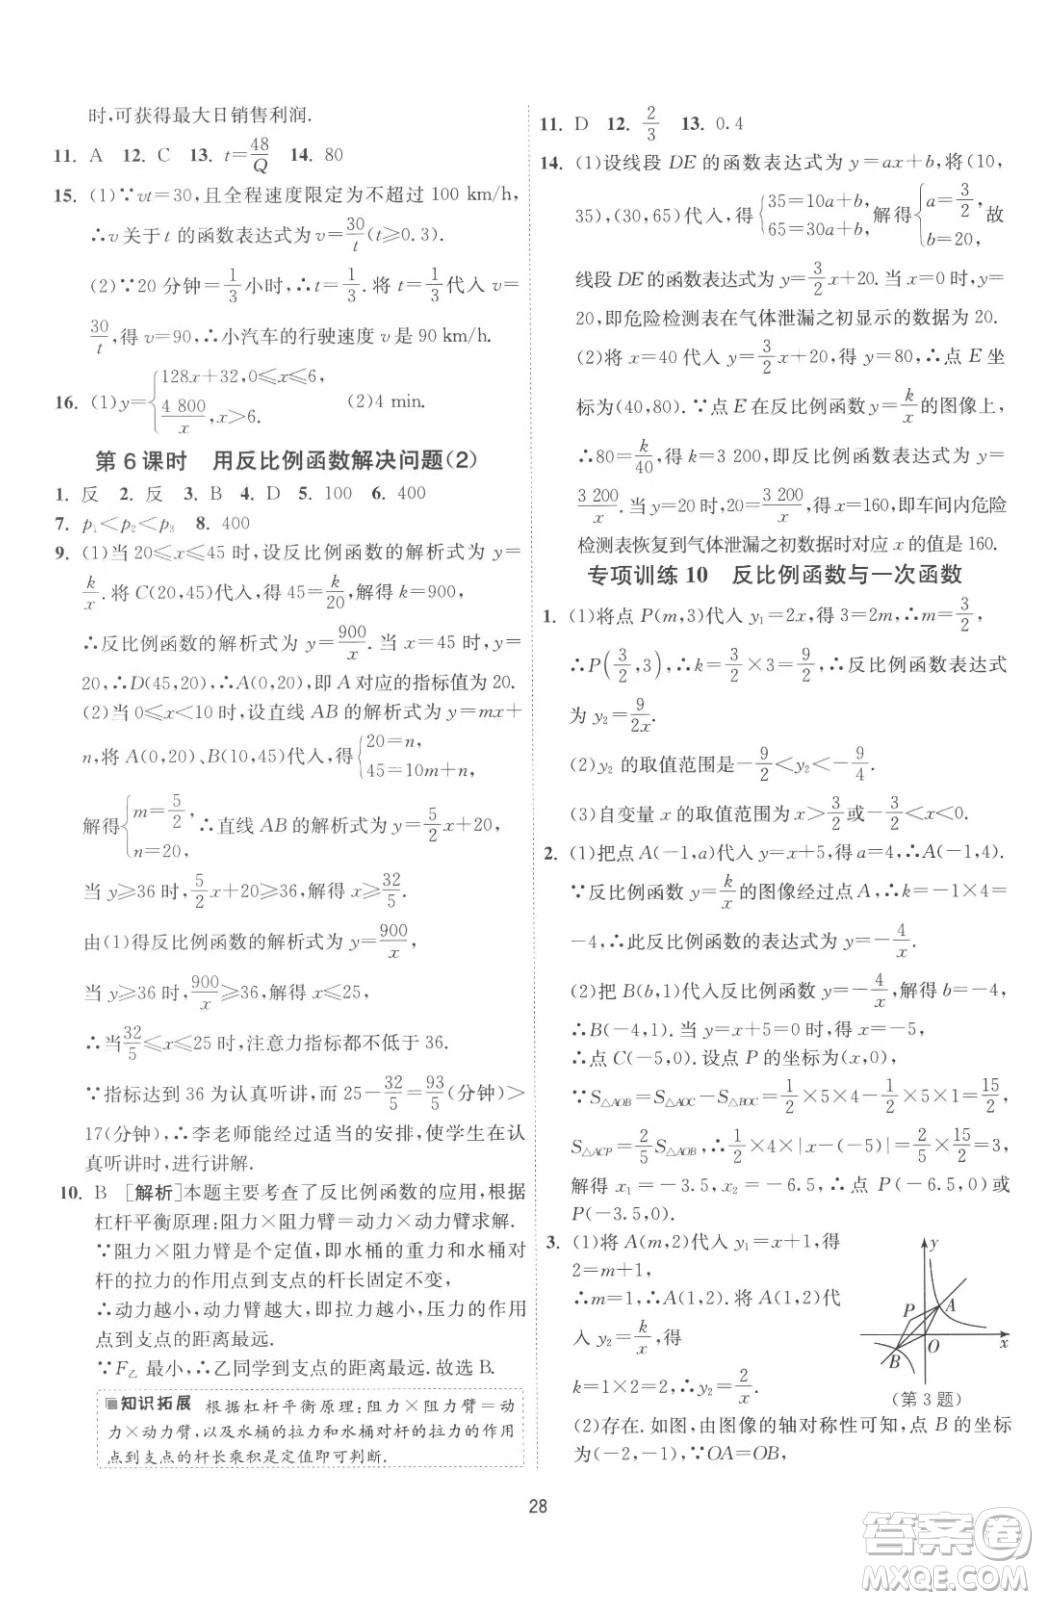 时,可获得最大日销售利润.
11. A 12. C 13. t=48/Q 14. 80
15. (1)∵vt=30,且全程速度限定为不超过 100 km/h,
∴v 关于 t 的函数表达式为 v=30/t(t≥0.3).
(2)∵20 分钟=1/3小时,∴t=1/3.将 t=1/3代入 v=
30/t,得 v=90,∴小汽车的行驶速度是 90 km/h.
16. (1)y={128x+32,0≤x≤6, 4 800/x,x>6. (2)4 min.
第 6 课时 用反比例函数解决问题(2)
1. 反 2. 反 3. B 4. D 5. 100 6. 400
7. p₁<p₂<p₃ 8. 400
9. (1)当 20≤x≤45 时,设反比例函数的解析式为 y=
k/x.将 C(20,45)代入,得 45=k/20,解得 k=900,
∴反比例函数的解析式为 y=900/x.当 x=45 时,y=
20,∴D(45,20),∴A(0,20),即 A 对应的指标值为 20.
(2)当 0≤x<10 时,设直线 AB 的解析式为 y=mx+
n,将 A(0,20)、B(10,45)代入,得{20=n, 45=10m+n,
解得{m=5/2, n=20, ∴直线 AB 的解析式为 y=5/2x+20,
当 y≥36 时,5/2x+20≥36,解得 x≥32/5.
由(1)得反比例函数的解析式为 y=900/x,
当 y≥36 时,900/x≥36,解得 x≤25,
∴当32/5≤x≤25 时,注意力指标都不低于 36.
∵指标达到 36 为认真听讲,而 25-32/5=93/5(分钟)>
17(分钟),∴李老师能经过适当的安排,使学生在认
真听讲时,进行讲解.
10. B [解析]本题主要考查了反比例函数的应用,根据
杠杆平衡原理:阻力×阻力臂=动力×动力臂求解.
∵阻力×阻力臂是个定值,即水桶的重力和水桶对
杆的拉力的作用点到支点的杆长固定不变,
∴动力越小,动力臂越大,即拉力越小,压力的作用
点到支点的距离最远.
∵F乙 最小,∴乙同学到支点的距离最远.故选 B.
知识拓展 根据杠杆平衡原理:阻力×阻力臂=动
力×动力臂,以及水桶的拉力和水桶对杆的拉力的作用
点到支点的杆长乘积是定值即可判断.
11. D 12. 2/3 13. 0.4
14. (1)设线段 DE 的函数表达式为 y=ax+b,将(10,
35),(30,65)代入,得{35=10a+b, 65=30a+b,解得{a=3/2, b=20,故
线段 DE 的函数表达式为 y=3/2x+20.当 x=0 时,y=
20,即危险检测表在气体泄漏之初显示的数据为 20.
(2)将 x=40 代入 y=3/2x+20,得 y=80,∴点 E 坐
标为(40,80).∵点 E 在反比例函数 y=k/x的图像上,
∴80=k/40,得 k=3 200,即反比例函数表达式为 y=
3 200/x.当 y=20 时,20=3 200/x,得 x=160,即车间内危险
检测表恢复到气体泄漏之初数据时对应 x 的值是 160.
专项训练 10 反比例函数与一次函数
1. (1)将点 P(m,3)代入 y₁=2x,得 3=2m,∴m=3/2,
∴P(3/2,3),∴k=3/2×3=9/2,∴反比例函数表达式
为 y₂=9/2x.
(2)y₂ 的取值范围是-9/2<y₂<-9/4.
(3)自变量 x 的取值范围为 x>3/2或-3/2<x<0.
2. (1)把点 A(-1,a)代入 y=x+5,得 a=4,∴A(-1,4).
∵反比例函数 y=k/x的图像经过点 A,∴k=-1×4=
-4,∴此反比例函数的表达式为 y=-4/x.
(2)把 B(b,1)代入反比例函数 y=-4/x,解得 b=-4,
∴B(-4,1).当 y=x+5=0 时,得 x=-5,
∴点 C(-5,0).设点 P 的坐标为(x,0),
∵S△AOB=S△AOC-S△BOC=1/2×5×4-1/2×5×1=15/2,
S△ACP=2/5S△AOB,∴1/2×4×|x-(-5)|=2/5×15/2=3,
解得 x₁=-3.5,x₂=-6.5,∴点 P(-6.5,0)或
P(-3.5,0).
3. (1)将 A(m,2)代入 y₁=x+1,得
2=m+1,
∴m=1,∴A(1,2).将 A(1,2)代
入 y₂=k/x,得
k=1×2=2,∴y₂=2/x.
y
P
A
O
B
x
(第 3 题)
(2)存在.如图,由图像的轴对称性可知,点 B 的坐标
为(-2,-1),∵OA=OB,
28
答案卷